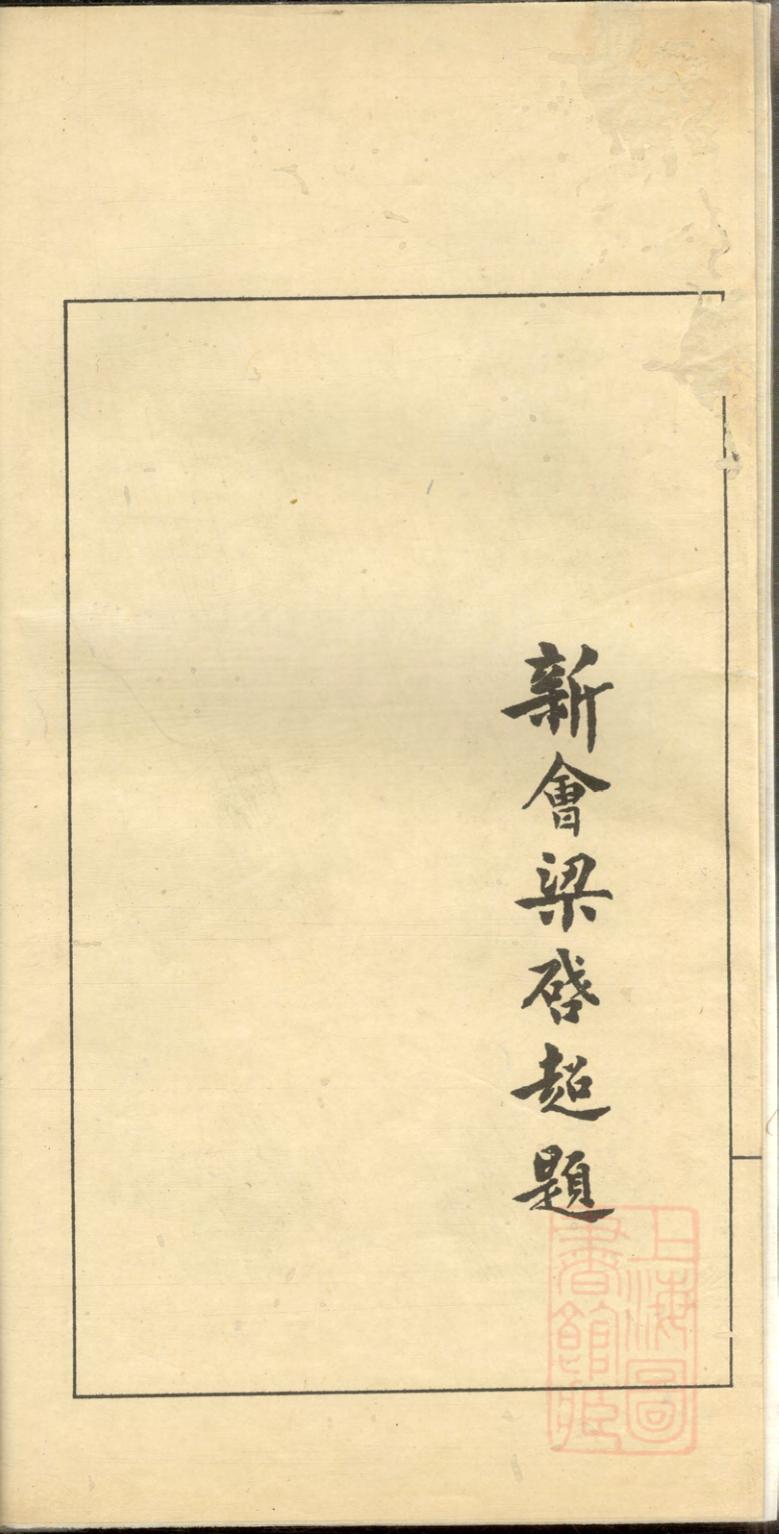 新會梁啓超題
上海圖
書館藏